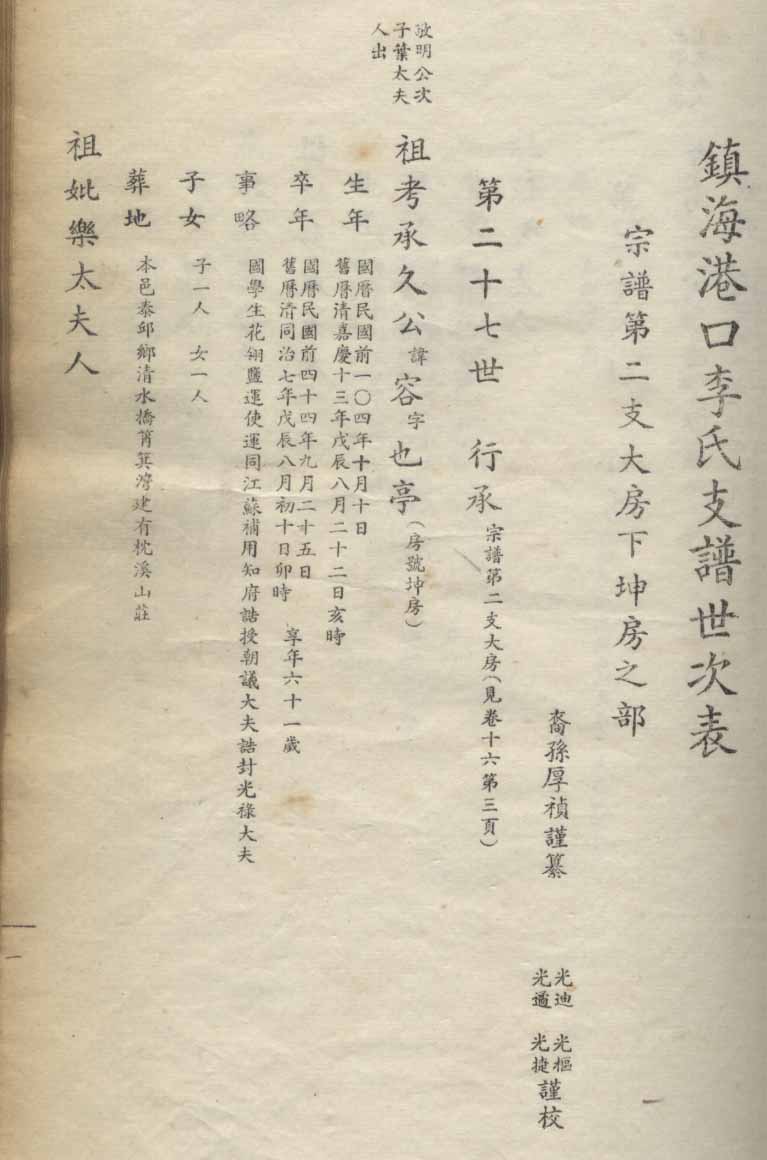 鎮海港口李氏支譜世次表
宗譜第二支大房下坤房之部
裔孫厚禎謹纂
光迪 光樞
光遹 光捷
謹校
第二十七世 行承 宗譜第二支大房(見卷十六第三頁)
敬明公次
子葉太夫
人出
祖考承久公諱容字也亭(房號坤房)
生年
國曆民國前一〇四年十月十日
舊曆清嘉慶十三年戊辰八月二十二日亥時
卒年
國曆民國前四十四年九月二十五日
舊曆清同治七年戊辰八月初十日卯時 享年六十一歲
事略 國學生花翎鹽運使運同江蘇補用知府誥授朝議大夫誥封光祿大夫
子女 子一人 女一人
葬地 本邑泰邱鄉清水橋筲箕灣建有枕溪山莊
祖妣樂太夫人